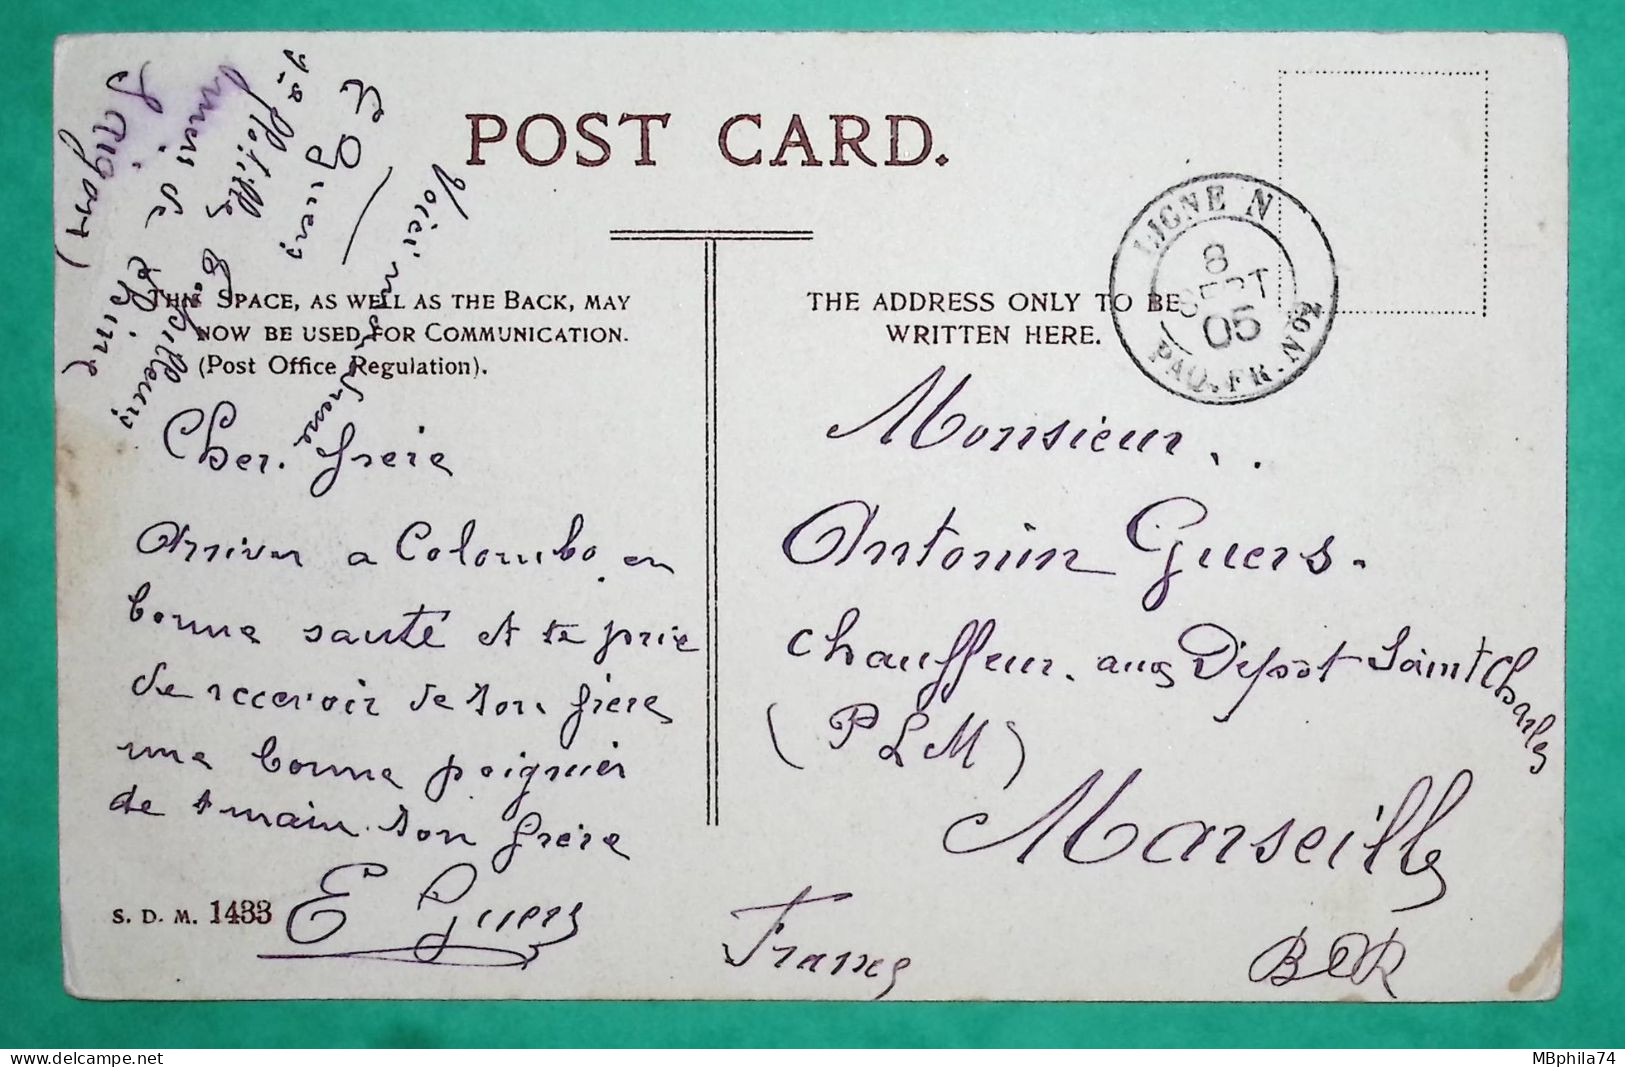 POST CARD.
THIS SPACE, AS WELL AS THE BACK, MAY
NOW BE USED FOR COMMUNICATION.
(Post Office Regulation).
THE ADDRESS ONLY TO BE
WRITTEN HERE.
LIGNE N
8
SEPT
05
PAQ. FR. No 2
Voici mon adresse
E Guers
1re flottille
torpilleurs
mers de Chine
Saigon)
Cher. frère
Arriver a Colombo en
bonne santé et te prie
de recevoir de ton frère
une bonne poignier
de main ton frère
E Guers
S. D. M. 1433
Monsieur
Antonin Guers.
chauffeur. aux Dépôt Saint Charles
(PLM)
Marseille
France
BDR
MBphila74
https://www.delcampe.net